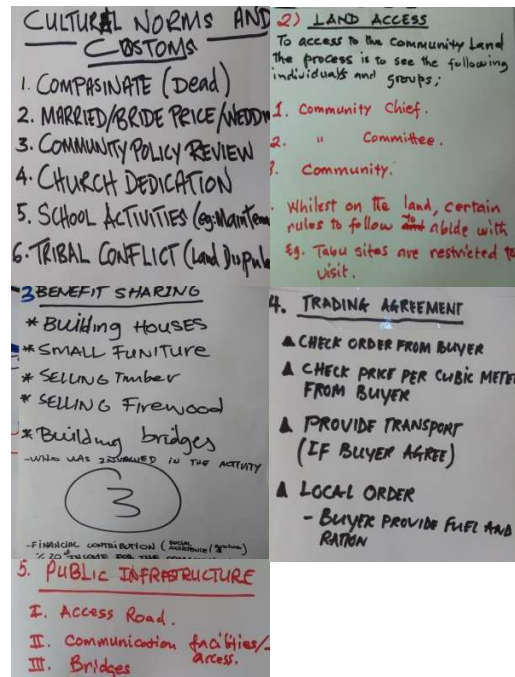 CULTURAL NORMS AND
CUSTOMS
1. COMPASINATE (Dead)
2. MARRIED/BRIDE PRICE/WEDDIN
3. COMMUNITY POLICY REVIEW
4. CHURCH DEDICATION
5. SCHOOL ACTIVITIES (eg:Maintena
6. TRIBAL CONFLICT (Land Dispute
2) LAND ACCESS
To access to the Community Land
the process is to see the following
individuals and groups;
1. Community Chief.
2. " Committee.
3. Community.
Whilest on the land, certain
rules to follow to abide with
Eg. Tabu sites are restricted to
visit.
3 BENEFIT SHARING
* Building HOUSES
* SMALL FUNITURE
* SELLING Timber
* SELLING Firewood
* Building bridges
- WHO WAS INVOLVED IN THE ACTIVITY
3
- FINANCIAL CONTRIBUTION (SOCIAL
4. TRADING AGREEMENT
▲ CHECK ORDER FROM BUYER
▲ CHECK PRICE PER CUBIC METE
FROM BUYER
▲ PROVIDE TRANSPORT
(IF BUYER AGREE)
▲ LOCAL ORDER
- BUYER PROVIDE FUEL AND
RATION
5. PUBLIC INFRASTRUCTURE
I. Access Road.
II. Communication facilities/
access.
III. Bridges